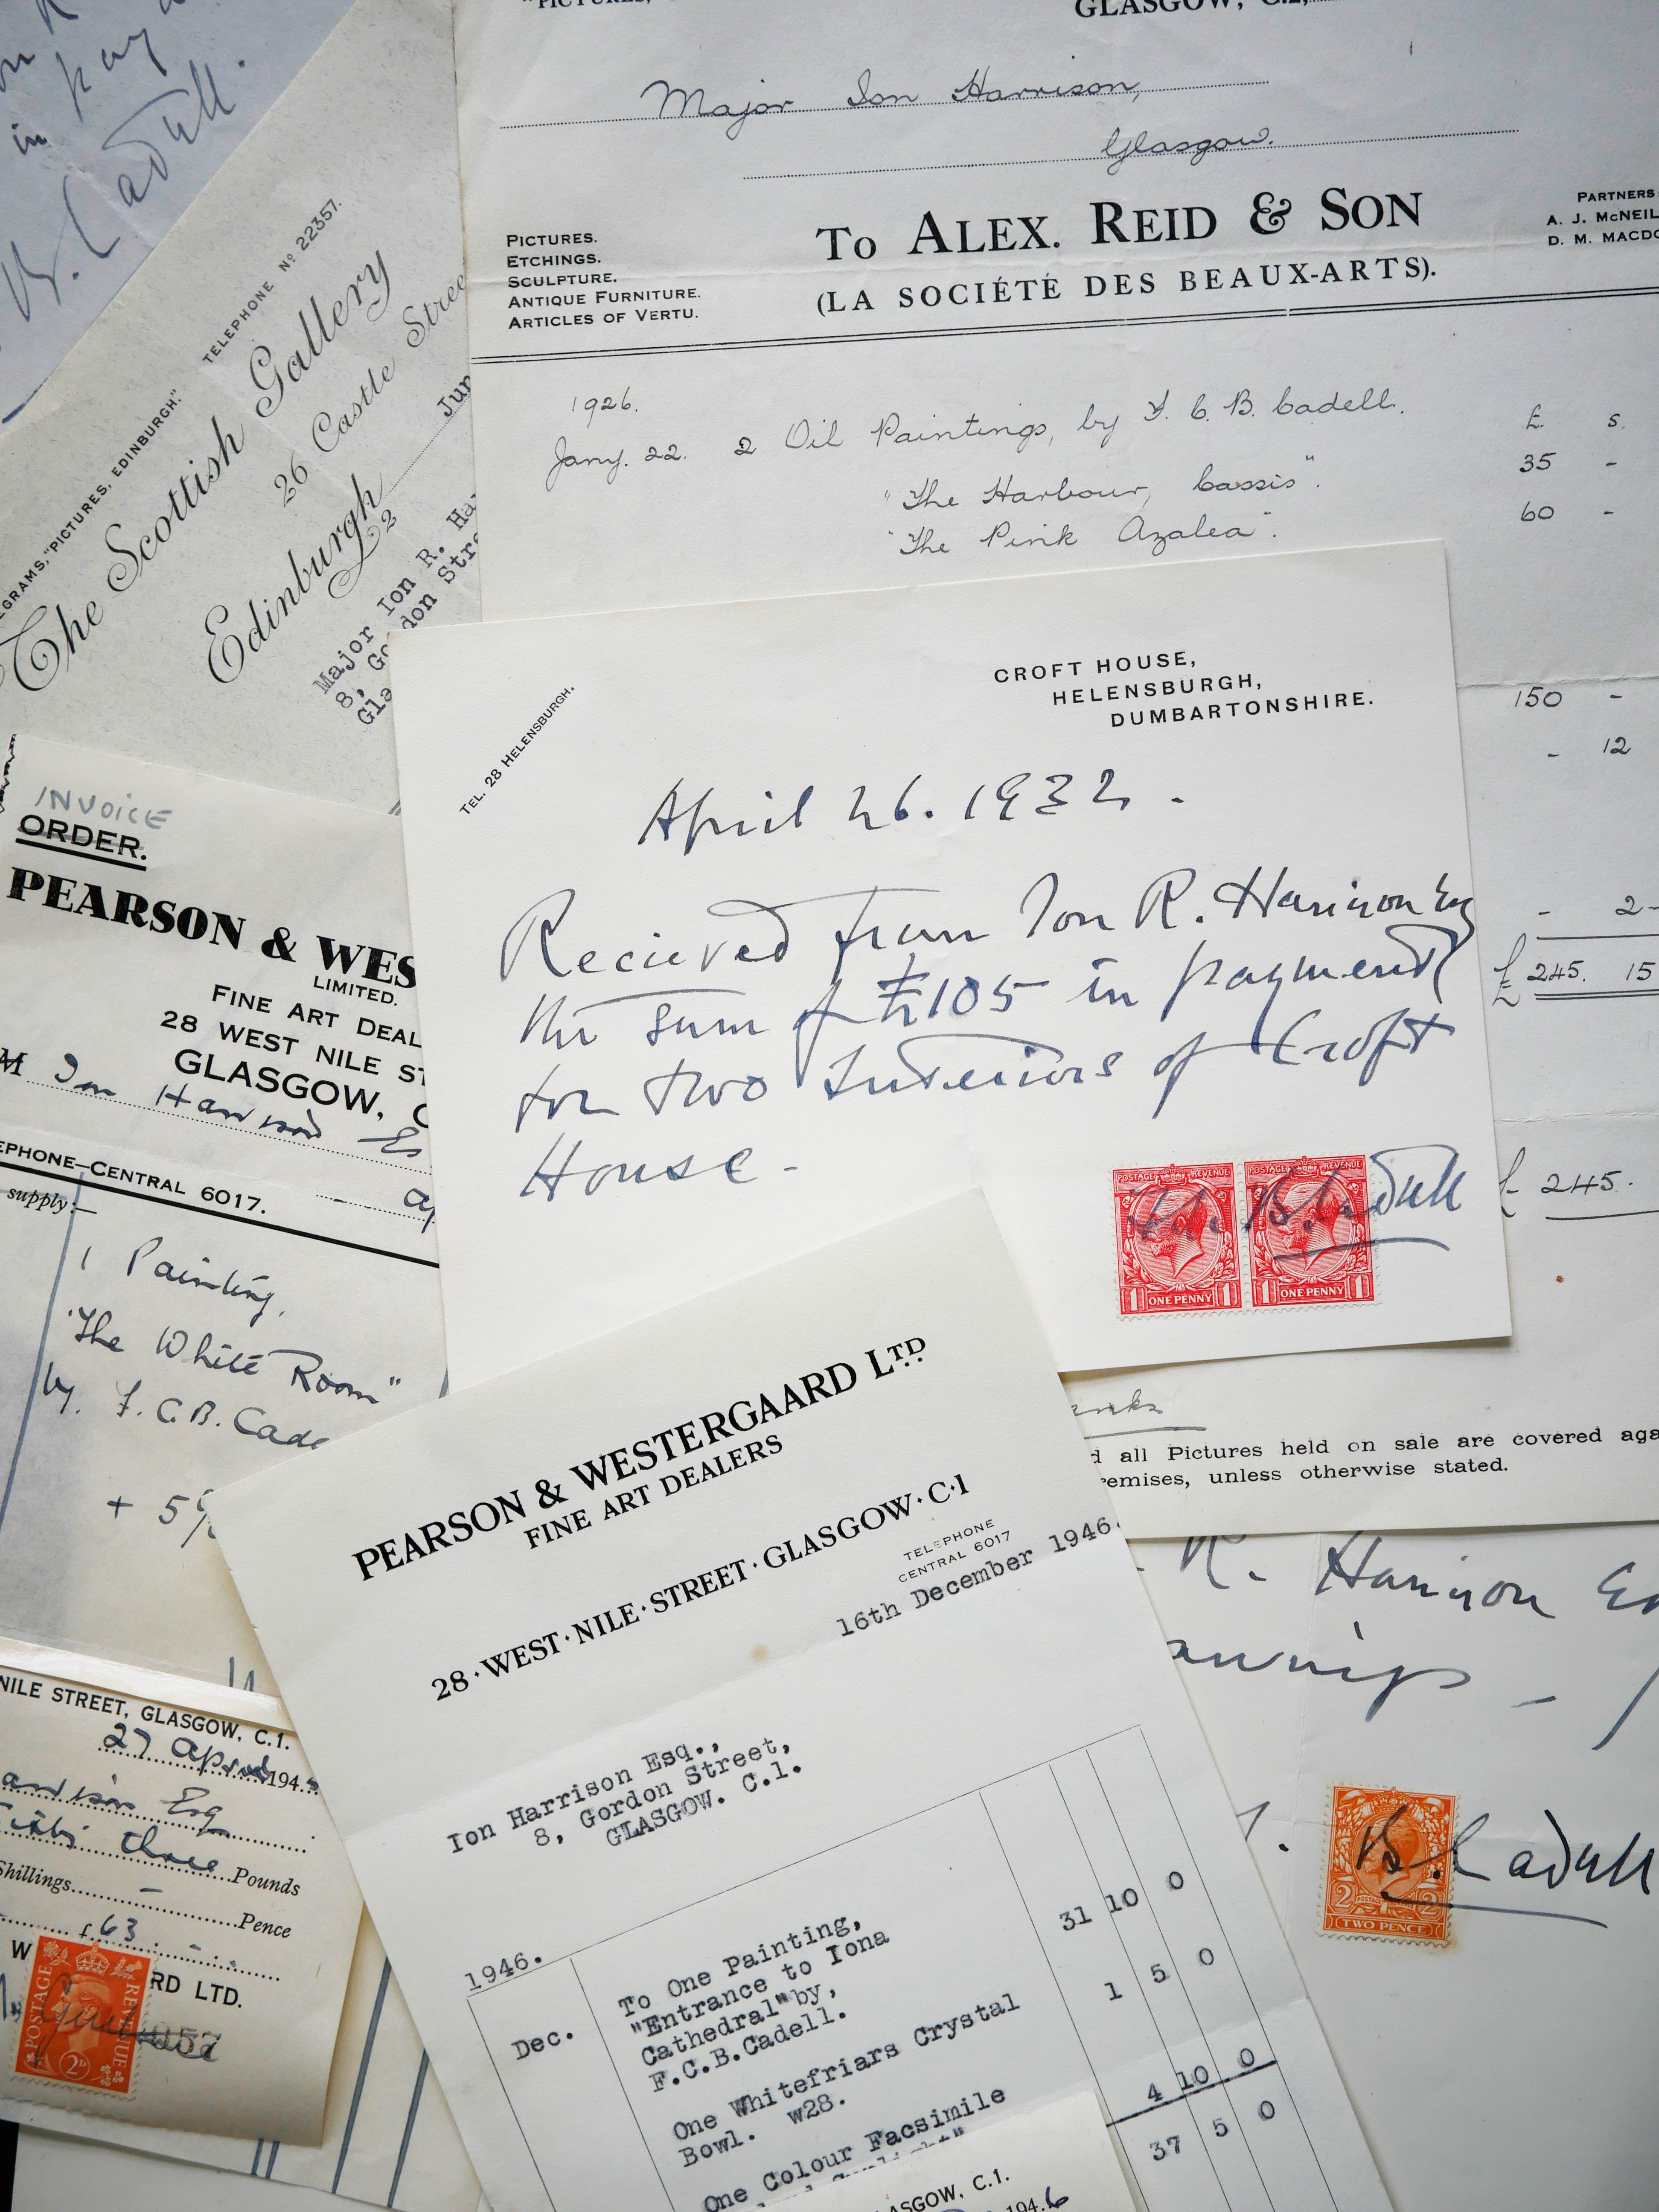 in pay
B. Cadell.
TELEPHONE No 22357.
"PICTURES, EDINBURGH."
The Scottish Gallery
26 Castle
Edinburgh 2
Major Ion R.
8,
"PICTURES,
GLASGOW, C.2,
Major Ion Harrison,
Glasgow.
PICTURES.
ETCHINGS.
SCULPTURE.
ANTIQUE FURNITURE.
ARTICLES OF VERTU.
TO ALEX. REID & SON
(LA SOCIÉTÉ DES BEAUX-ARTS).
PARTNERS
A. J. MCNEIL
D. M. MACDO
1926.
Jany. 22. 2 Oil Paintings, by F. C. B. Cadell. £ s.
"The Harbour, Cassis". 35 -
"The Pink Azalea". 60 -
150 -
- 12
- 2-
£ 245. 15
£ 245.
all Pictures held on sale are covered
unless otherwise stated.
TEL. 28 HELENSBURGH.
CROFT HOUSE,
HELENSBURGH,
DUMBARTONSHIRE.
April 26. 1932.
Recieved from Ion R. Harrison Esq
the sum of £105 in payment
for two Interiors of Croft
House-
B. Cadell
POSTAGE REVENUE POSTAGE REVENUE
1 ONE PENNY 1 1 ONE PENNY 1
INVOICE
ORDER.
PEARSON & WES
LIMITED.
FINE ART DEAL
28 WEST NILE ST
GLASGOW,
M Ion Harrison Es
EPHONE—CENTRAL 6017.
supply:—
1 Painting,
"The White Room"
by F. C. B. Cade
+ 5%
PEARSON & WESTERGAARD LTD
FINE ART DEALERS
28·WEST·NILE·STREET·GLASGOW·C·1
TELEPHONE
CENTRAL 6017
16th December 1946.
Ion Harrison Esq.,
8, Gordon Street,
GLASGOW. C.1.
1946.
Dec. To One Painting, 31 10 0
"Entrance to Iona
Cathedral" by,
F.C.B.Cadell.
One Whitefriars Crystal 1 5 0
Bowl. w28.
One Colour Facsimile 4 10 0
37 5 0
GLASGOW, C.1.
194.6
NILE STREET, GLASGOW, C.1.
27 April 194
Esq
three Pounds
Shillings - Pence
£63 - -
RD LTD.
POSTAGE REVENUE
2D
R. Harrison Es
B. Cadell
2 2
TWO PENCE